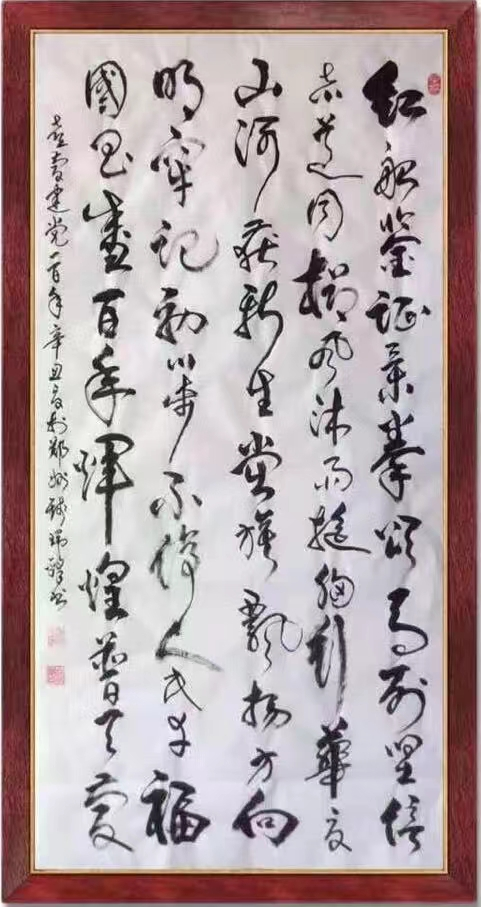 红船鉴证举拳颂马列坚信
志道同栉风沐雨挺胸行华夏
山河获新生党旗飘扬方向
明牢记初心步不停人民幸福
国昌盛百年辉煌普天庆
喜庆建党一百年辛丑夏於郑州